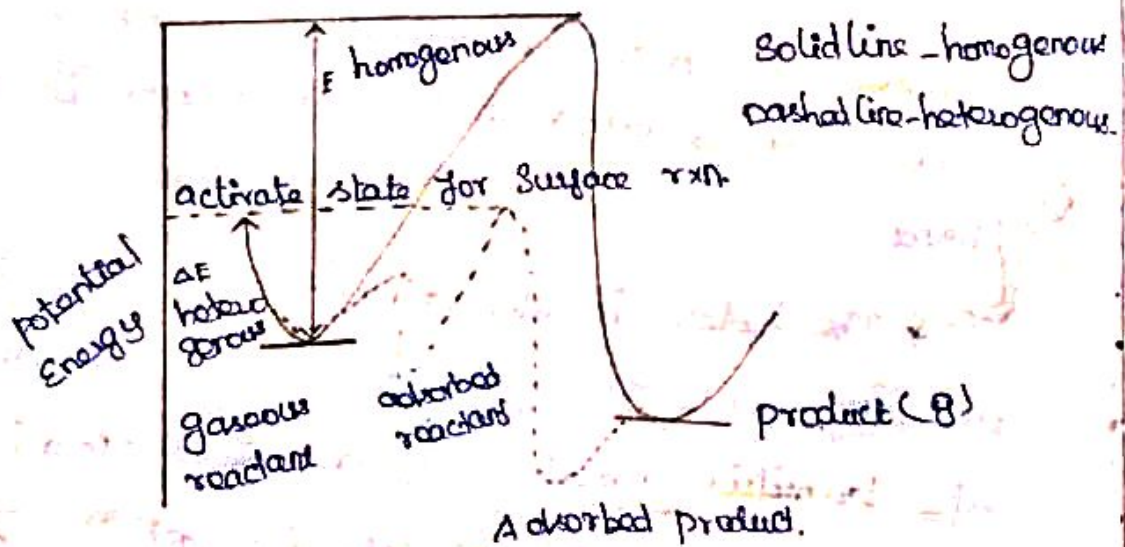 E homogenous
Solid line - homogenous
Dashed line - heterogenous.
activate state for Surface rxn.
potential
Energy
ΔE
hetero
genous
gaseous
reactant
adsorbed
reactant
product (g)
Adsorbed product.